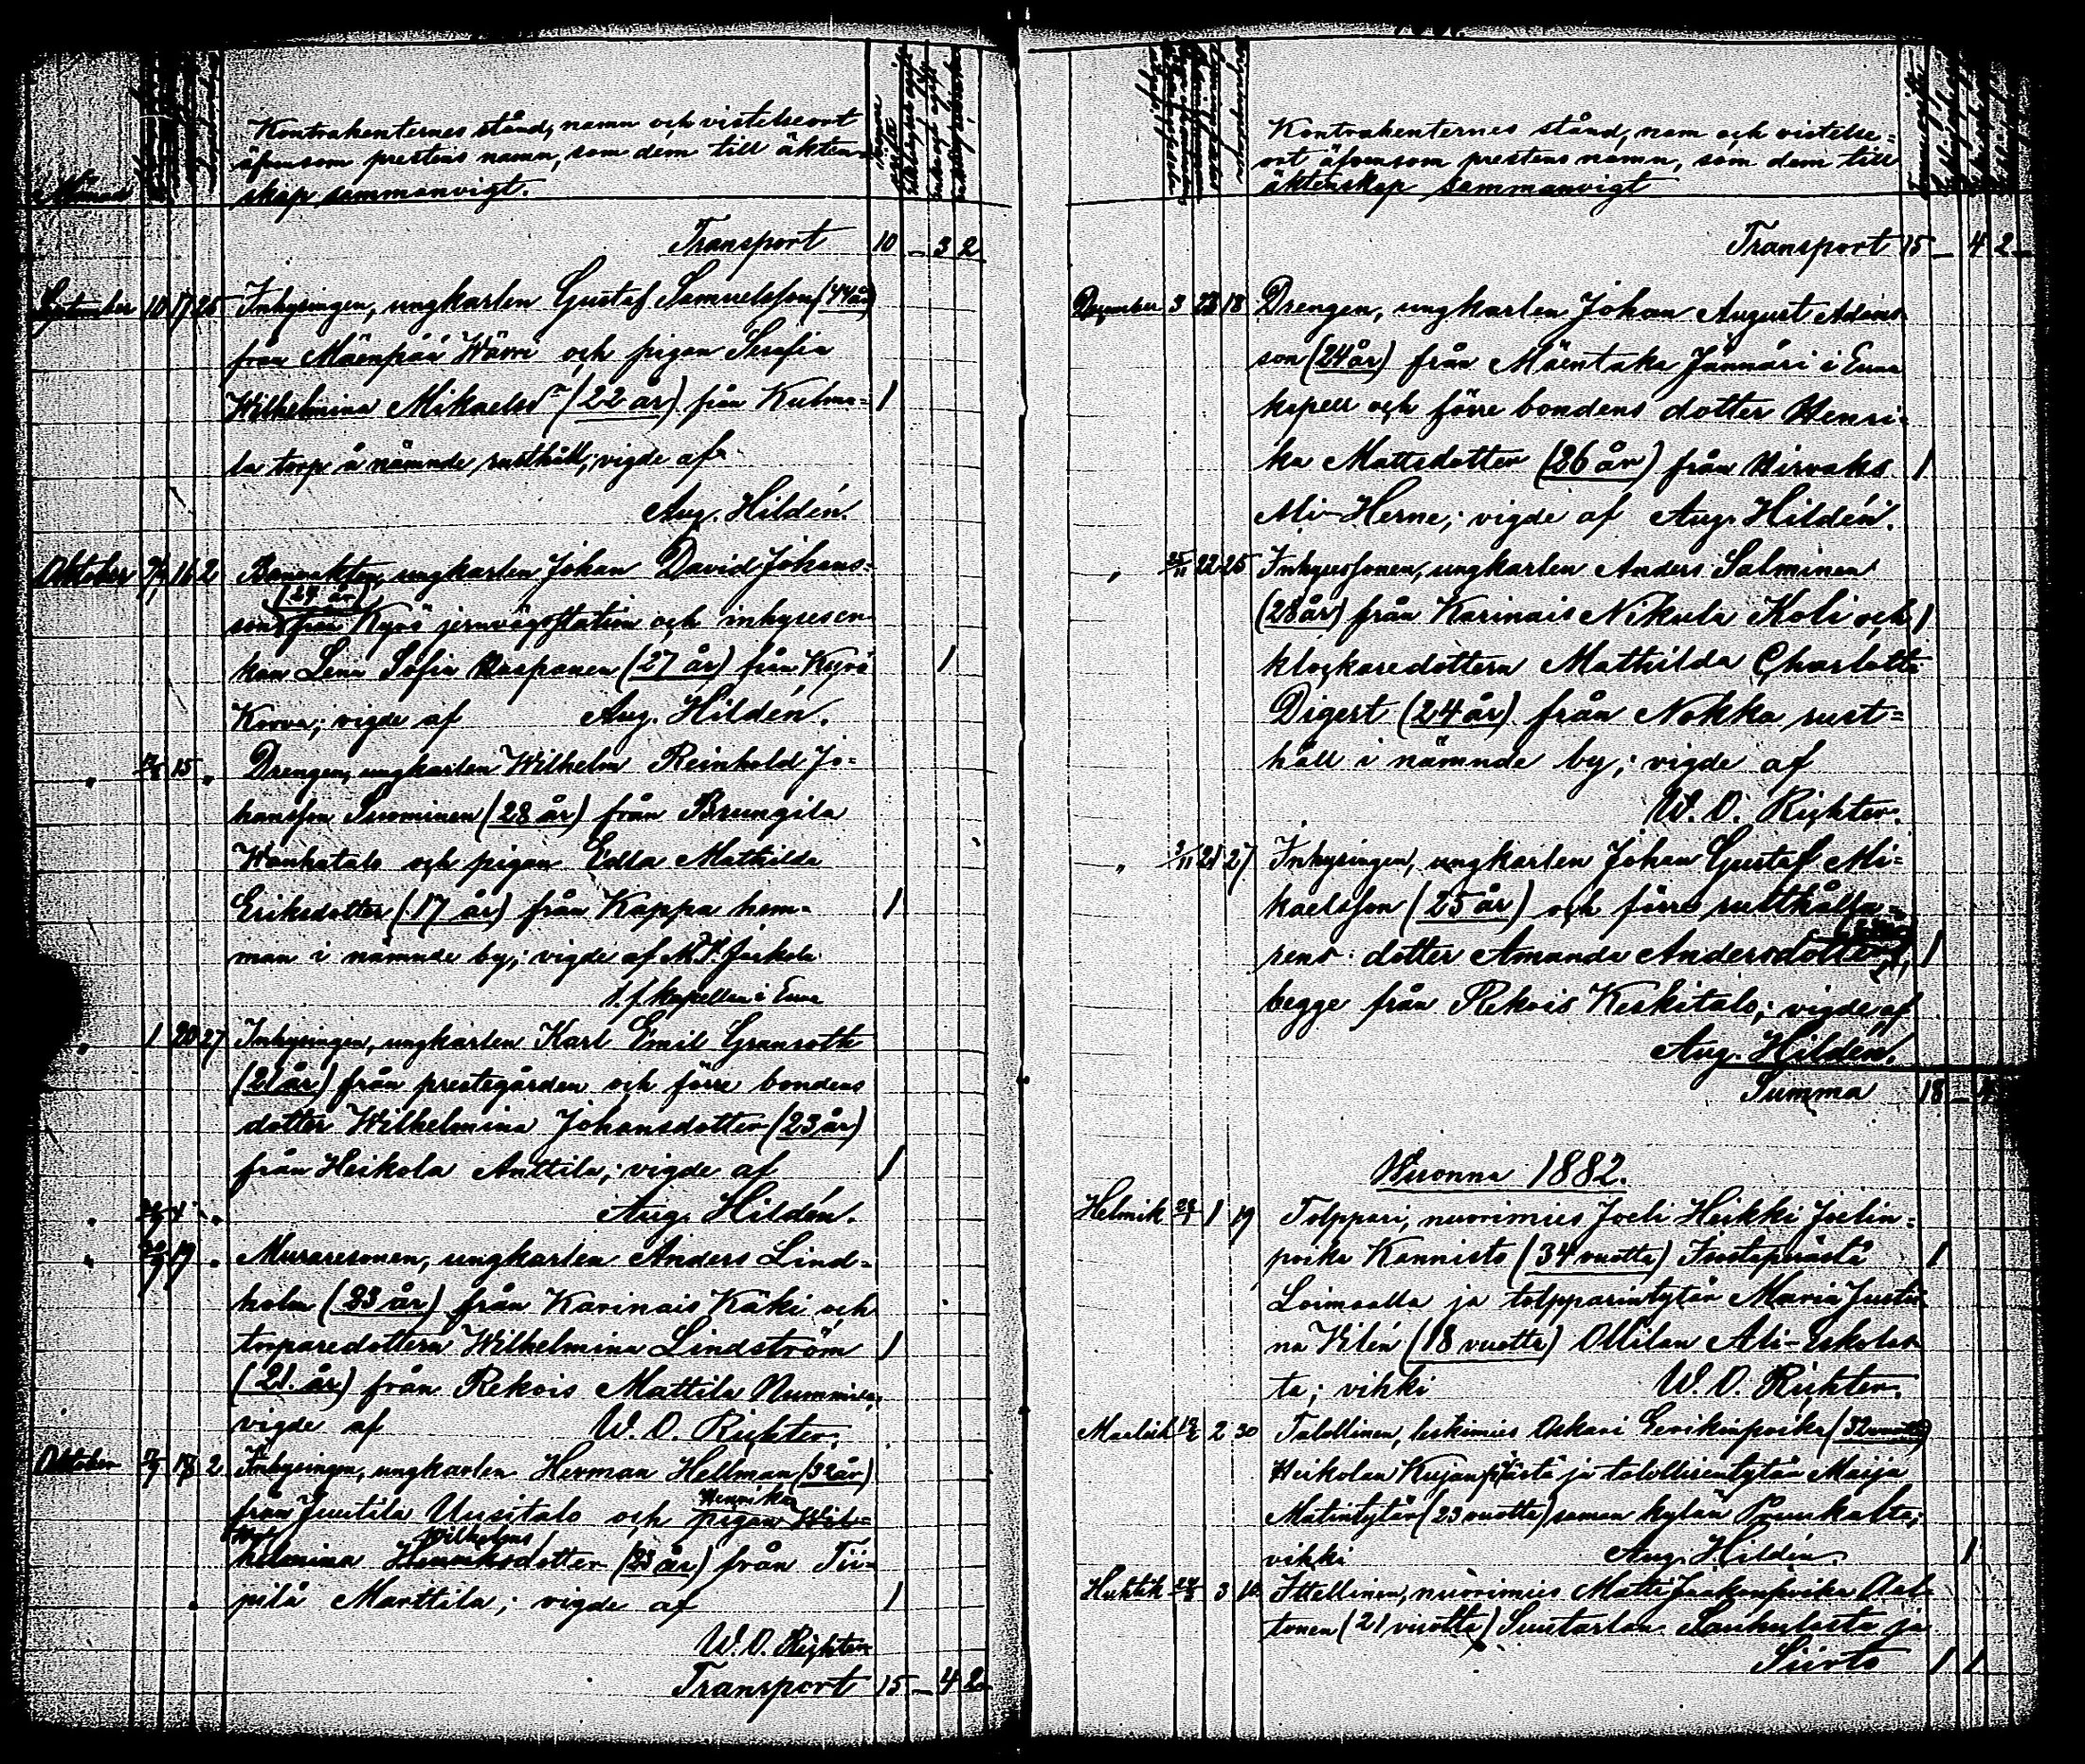 Kontrahenternes stånd, namn och vistelseort
äfvensom prestens namn, som dem till äkten-
Månad skap sammanvigt.
Transport 10 – 3 2
September 10 17 25 Inhysingen, ungkarlen Gustaf Samuelsson (44 år)
från Mäenpää Wärri och pigan Serafia
Wilhelmina Mikaelsdr (22 år) från Kulma- 1
la torp å nämnde rusthåll; vigde af
Aug. Hildén.
Oktober 16 2 Banvakten, ungkarlen Johan David Johans-
(24 år)
son från Kyrö jernvägsstation och inhyses en-
kan Lena Sofia Haapanen (27 år) från Kyrö 1
Korva; vigde af Aug. Hildén.
" 15 " Drengen, ungkarlen Wilhelm Reinhold Jo-
hansson Suominen (28 år) från Brungila
Wanhatalo och pigan Edla Mathilda
Eriksdotter (17 år) från Kappa hem- 1
man i nämnde by; vigde af
t.f. kapellan i Eura
" 1 20 27 Inhysingen, ungkarlen Karl Emil Granroth
(21 år) från prestegården och förre bondens
dotter Wilhelmina Johansdotter (23 år)
från Heikola Anttila; vigde af 1
Aug. Hildén.
" 19 " Muraresonen, ungkarlen Anders Lind-
holm (23 år) från Karinais Käki och
torparedottern Wilhelmina Lindström 1
(21 år) från Rekois Mattila Nummila;
vigde af W. O. Richter.
Oktober 18 2 Inhysingen, ungkarlen Herman Hellman (32 år)
Henrika
från Juntila Uusitalo och pigan Wil-
Wilhelms
helmina Henriksdotter (23 år) från Tii-
pilä Marttila; vigde af 1
W. O. Richter
Transport 15 – 4 2
Kontrahenternes stånd, nam och vistelse-
ort äfvensom prestens namn, som dem till
äktenskap sammanvigt
Transport 15 – 4 2
December 3 23 18 Drengen, ungkarlen Johan August Adams-
son (24 år) från Mäentaka Jännäri i Eura
kapell och förre bondens dotter Henri-
ka Mattsdotter (26 år) från Hirvaks 1
Ali-Herne; vigde af Aug. Hildén.
" 25/11 22 25 Inhysessonen, ungkarlen Anders Salminen
(28 år) från Karinais Nikula Koli och 1
klockaredottern Mathilda Charlotta
Digert (24 år) från Nokka rust-
håll i nämnde by; vigde af
W. O. Richter.
" 21 27 Inhysingen, ungkarlen Johan Gustaf Mi-
kaelsson (25 år) och förre rusthålla-
rens dotter Amanda Andersdotter, 1
begge från Rekois Keskitalo; vigde af
Aug. Hildén.
Summa 18 – 4
Wuonna 1882.
Helmik 1 19 Tolppari, nuorimies Joeli Heikki Joelin-
poika Kannisto (34 vuotta) Isostaperästä 1
Loimaalla ja tolpparintytär Maria Justii-
na Vilén (18 vuotta) Ollilan Ali-Eskolas-
ta; vihki W. O. Richter.
Maalisk 2 30 Talollinen, leskimies Oskari Eerikinpoika (32 vuotta)
Heikolan Kujanpäästä ja talollisentytär Maija
Matintytär (23 vuotta) saman kylän
vihki Aug. Hildén. 1
Huhtik 3 Itsellinen, nuorimies Matti Jaakonpoika Aal-
tonen (21 vuotta) Suutarlan Sauhulasta ja
Siirto 1 1